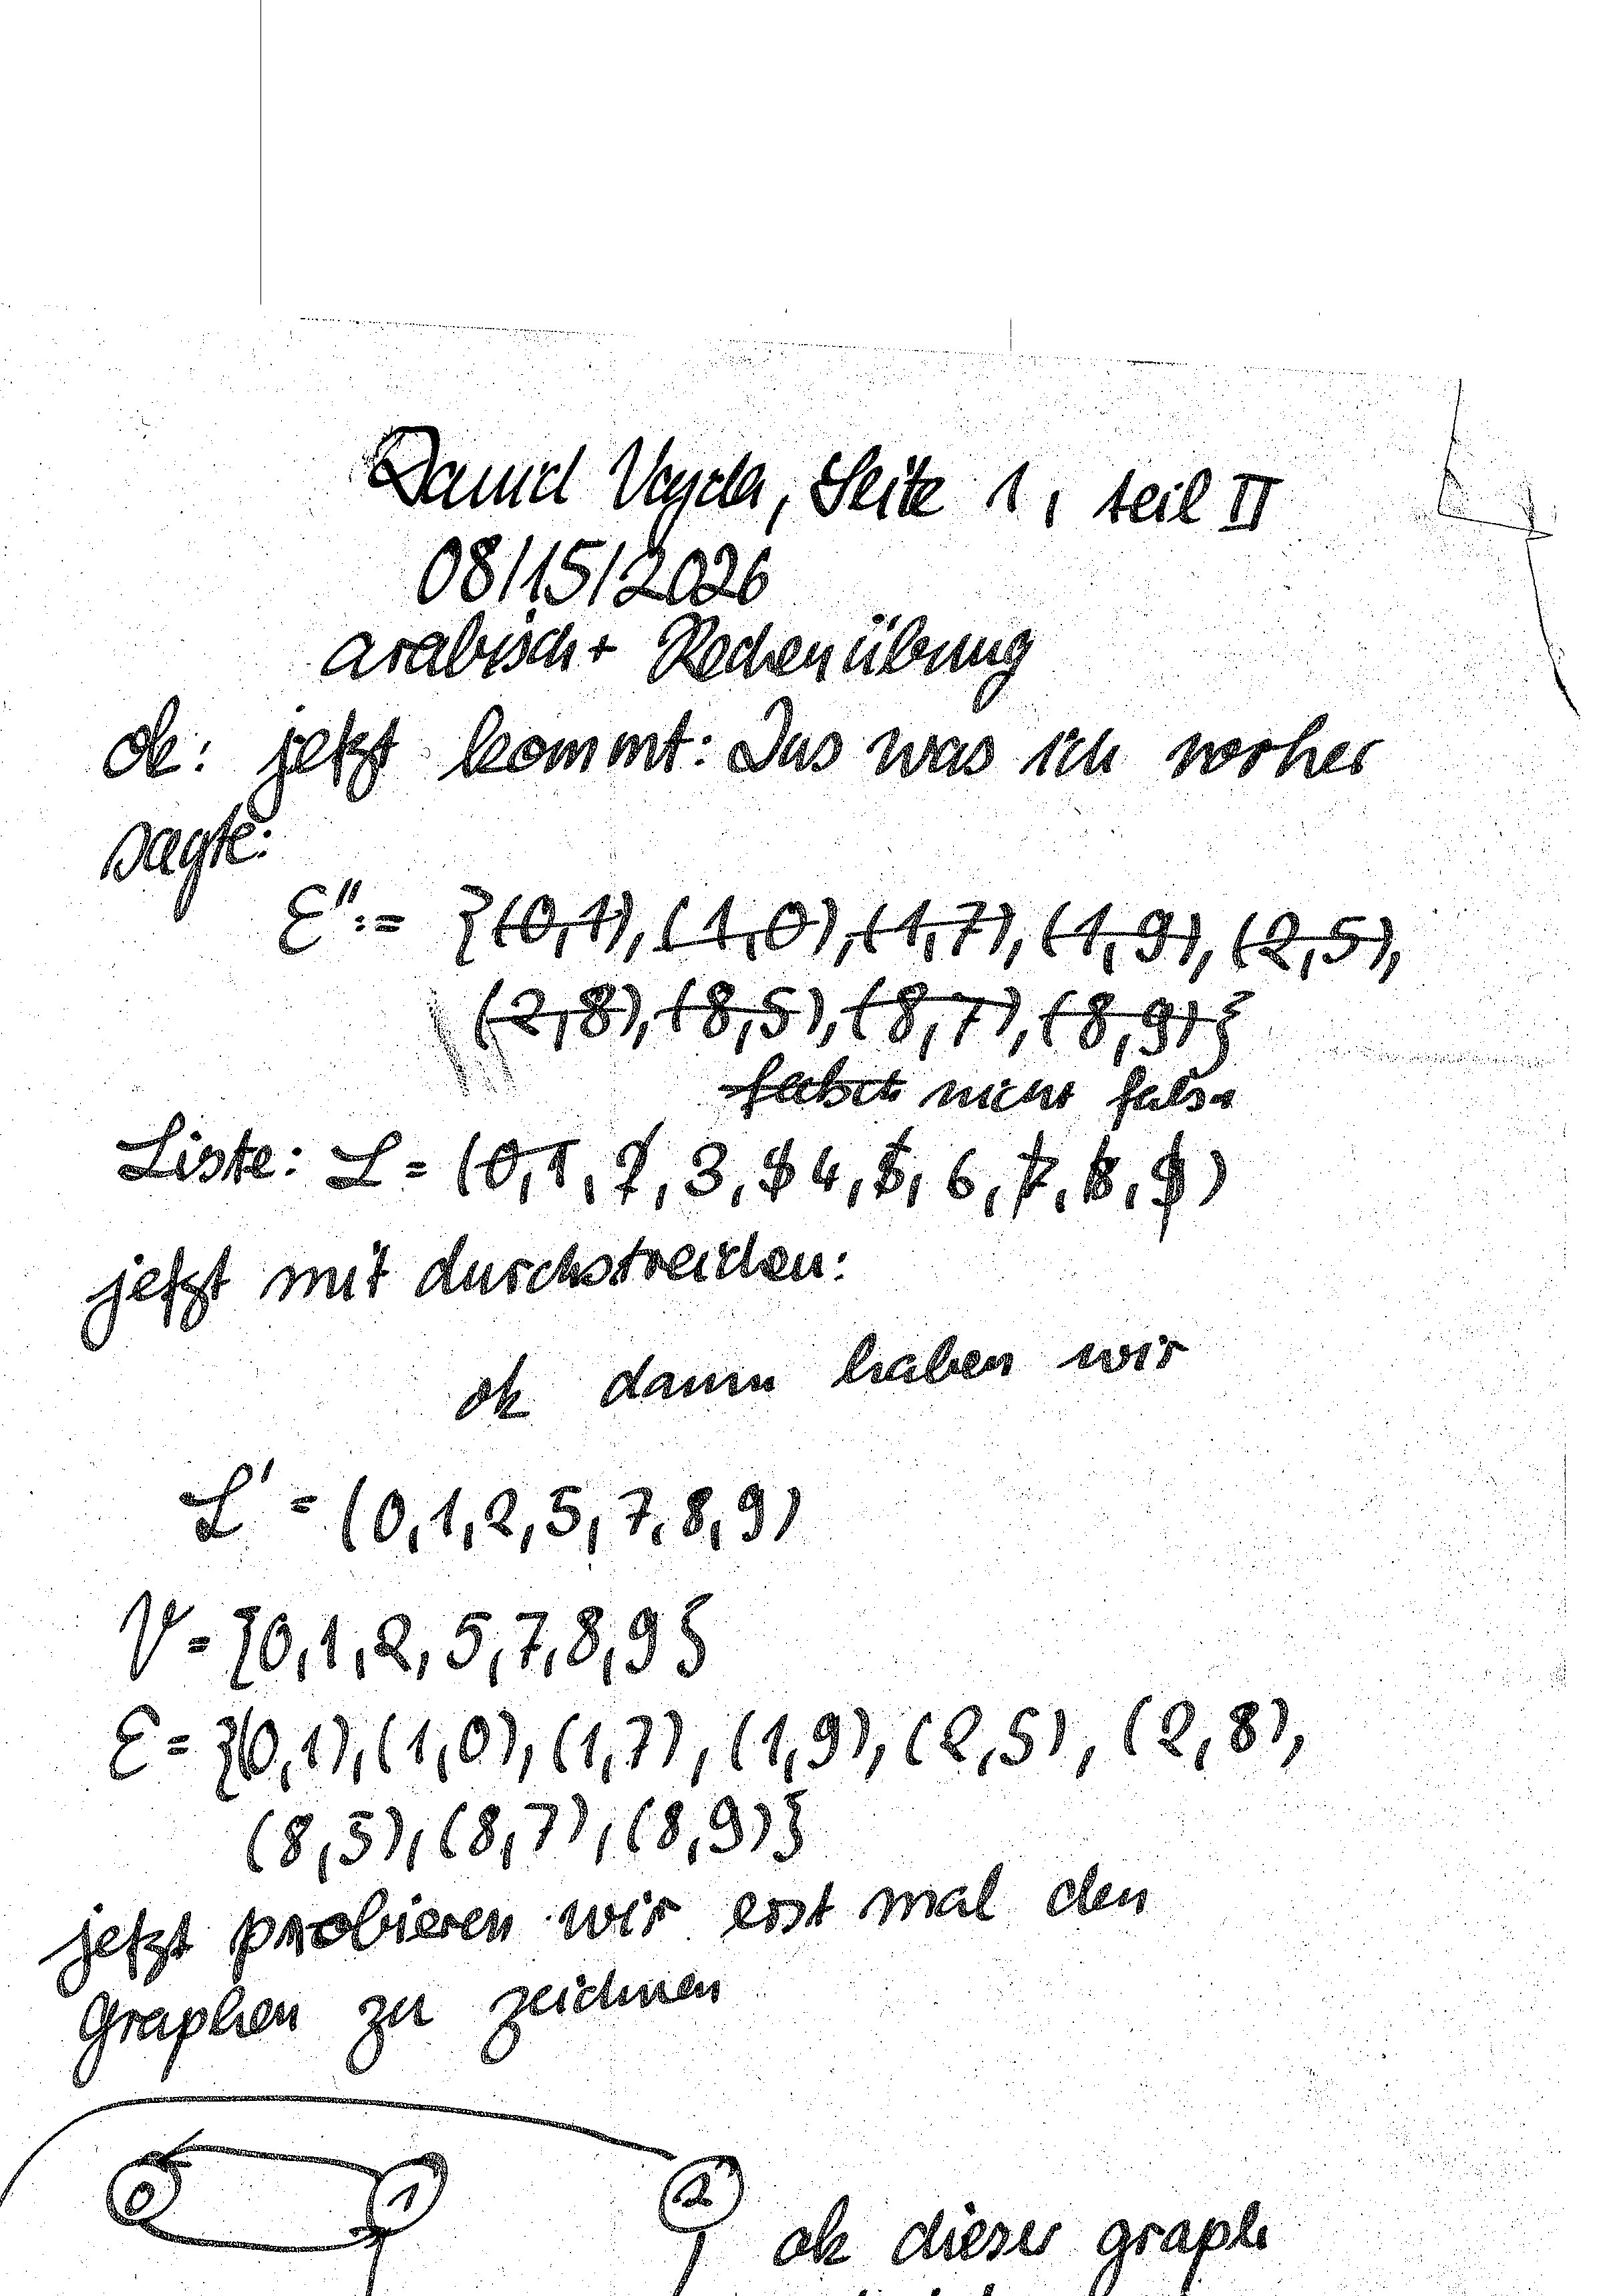 Daniel Vayda, Seite 1, teil II
08/15/2026
arabisch+ Rechenübung
ok: jetzt kommt: Das was ich vorher
sagte:
E'':= {(0,1), (1,0), (1,7), (1,9), (2,5),
(2,8), (8,5), (8,7), (8,9)}
falsch nicht falsch
Liste: L = (0,1, 2, 3, 4, 5, 6, 7, 8, 9)
jetzt mit durchstreichen:
ok dann haben wir
L' = (0,1,2,5,7,8,9)
V = {0,1,2,5,7,8,9}
E = {(0,1),(1,0),(1,7),(1,9),(2,5),(2,8),
(8,5),(8,7),(8,9)}
jetzt probieren wir erst mal den
Graphen zu zeichnen
0 1 2 ok dieser graph